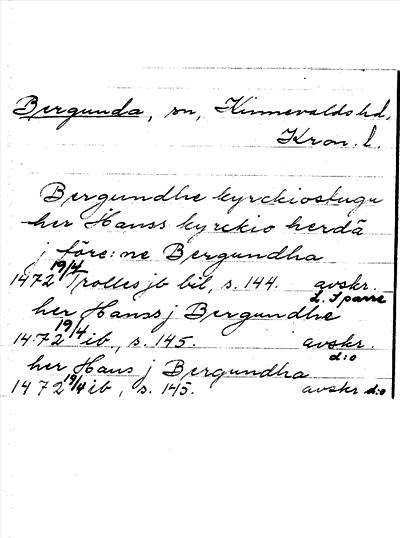 Bergunda, sn, Kinnevalds hd,
Kron. l.
Bergundhe kyrckiostugu
her Hanss kyrckio herdä
j före:ne Bergundha
1472 19/4 Trolles jb bil, s. 144. avskr.
L. Sparre
her Hanss j Bergundhe
1472 19/4 ib, s. 145. avskr.
d:o
her Hans j Bergundha
1472 19/4 ib, s. 145. avskr d:o